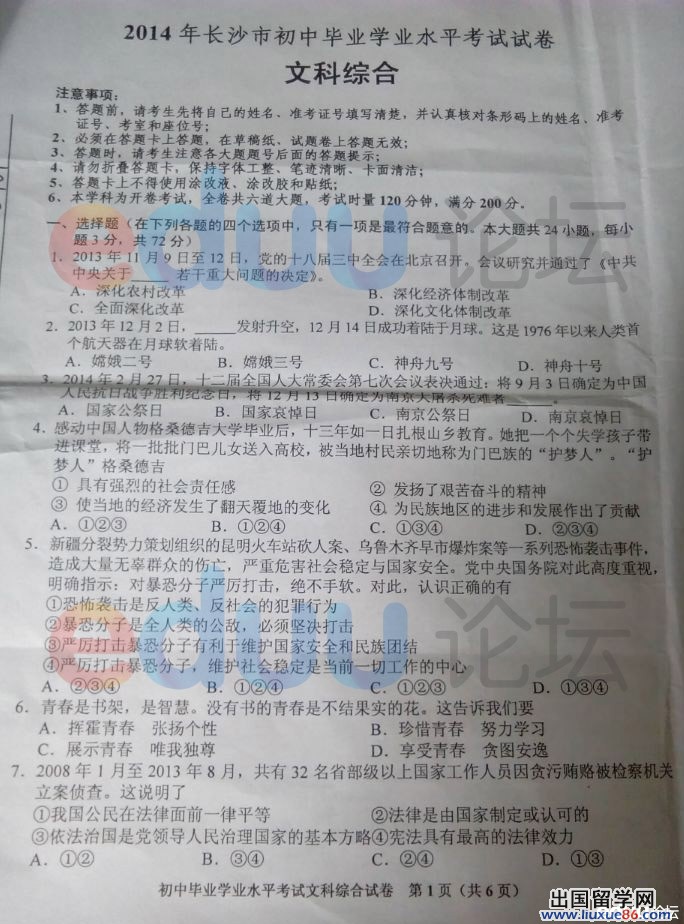 2014 年长沙市初中毕业学业水平考试试卷
文科综合
注意事项：
1、答题前，请考生先将自己的姓名、准考证号填写清楚，并认真核对条形码上的姓名、准考
证号、考室和座位号；
2、必须在答题卡上答题，在草稿纸、试题卷上答题无效；
3、答题时，请考生注意各大题题号后面的答题提示；
4、请勿折叠答题卡，保持字体工整、笔迹清晰、卡面清洁；
5、答题卡上不得使用涂改液、涂改胶和贴纸；
6、本学科为开卷考试，全卷共六道大题，考试时量 120 分钟，满分 200 分。
一、选择题（在下列各题的四个选项中，只有一项是最符合题意的。本大题共 24 小题，每小
题 3 分，共 72 分）
1．2013 年 11 月 9 日至 12 日，党的十八届三中全会在北京召开。会议研究并通过了《中共
中央关于______若干重大问题的决定》。
A．深化农村改革 B．深化经济体制改革
C．全面深化改革 D．深化文化体制改革
2．2013 年 12 月 2 日，_____发射升空，12 月 14 日成功着陆于月球。这是 1976 年以来人类首
个航天器在月球软着陆。
A．嫦娥二号 B．嫦娥三号 C．神舟九号 D．神舟十号
3．2014 年 2 月 27 日，十二届全国人大常委会第七次会议表决通过：将 9 月 3 日确定为中国
人民抗日战争胜利纪念日，将 12 月 13 日确定为南京大屠杀死难者_____。
A．国家公祭日 B．国家哀悼日 C．南京公祭日 D．南京哀悼日
4．感动中国人物格桑德吉大学毕业后，十三年如一日扎根山乡教育。她把一个个失学孩子带
进课堂，将一批批门巴儿女送入高校，被当地村民亲切地称为门巴族的“护梦人”。“护
梦人”格桑德吉
① 具有强烈的社会责任感 ② 发扬了艰苦奋斗的精神
③ 使当地的经济发生了翻天覆地的变化 ④ 为民族地区的进步和发展作出了贡献
A．①②③ B．①②④ C．①③④ D．②③④
5．新疆分裂势力策划组织的昆明火车站砍人案、乌鲁木齐早市爆炸案等一系列恐怖袭击事件，
造成大量无辜群众的伤亡，严重危害社会稳定与国家安全。党中央国务院对此高度重视，
明确指示：对暴恐分子严厉打击，绝不手软。对此，认识正确的有
①恐怖袭击是反人类、反社会的犯罪行为
②暴恐分子是全人类的公敌，必须坚决打击
③严厉打击暴恐分子有利于维护国家安全和民族团结
④严厉打击暴恐分子，维护社会稳定是当前一切工作的中心
A．②③④ B．①②④ C．①②③ D．①③④
6．青春是书架，是智慧。没有书的青春是不结果实的花。这告诉我们要
A．挥霍青春 张扬个性 B．珍惜青春 努力学习
C．展示青春 唯我独尊 D．享受青春 贪图安逸
7．2008 年 1 月至 2013 年 8 月，共有 32 名省部级以上国家工作人员因贪污贿赂被检察机关
立案侦查。这说明了
①我国公民在法律面前一律平等 ②法律是由国家制定或认可的
③依法治国是党领导人民治理国家的基本方略④宪法具有最高的法律效力
A．①② B．③④ C．②④ D．①③
初中毕业学业水平考试文科综合试卷 第 1 页（共 6 页）
eduu论坛
eduu论坛
出国留学网
www.liuxue86.com